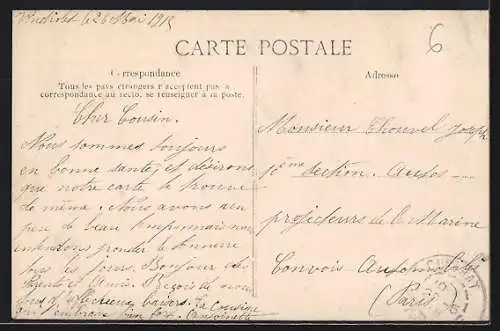 le 26 Mai 1915
6
CARTE POSTALE
Correspondance
Tous les pays étrangers n'acceptent pas la
correspondance au recto, se renseigner à la poste.
Adresse
Cher Cousin.
Nous sommes toujours
en bonne santez et désirons
que notre carte te trouve
de même. Nous avons un
peu de beau temps mais nous
entendons gronder le tonnerre
tous les jours. Bonjour des
parents et amis. Reçois de nous
baisers. Ta Cousine
qui t'embrasse bien fort. Antoinette
Monsieur Thouvel Joseph
section. Autos
projecteurs de la Marine
Convois Automobiles
(Paris)